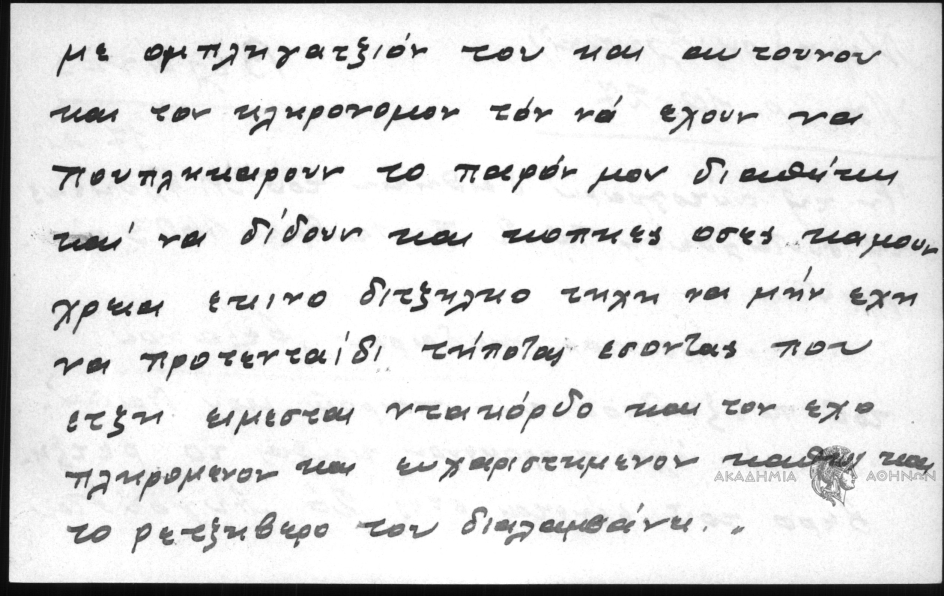 με ομπληγατζιόν του και αυτουνου
και τον κληρονομον τόν νά εχουν να
πουπληκαρουν το παρόν μου διαθήκη
καί να δίδουν και κοπηες οσες καμουν
χρεια εκινο διτζηλιο τηχη να μήν εχη
να προτενταίδι τήποτας εσοντας που
ετζη ειμεσται ντακόρδο και τον εχο
πληρομενον και ευχαριστημενον καθως και
το ρετζηβερο του διαλαμβάνη..
ΑΚΑΔΗΜΙΑ ΑΘΗΝΩΝ